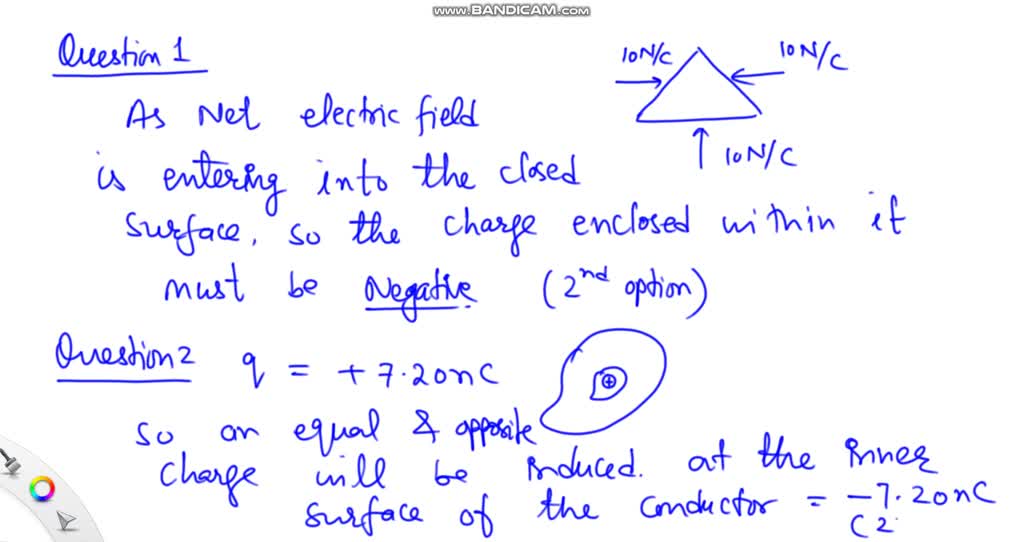 www.BANDICAM.com
Question 1
10N/C
10N/C
As Net electric field
10N/C
is entering into the closed
surface, so the charge enclosed within it
must be Negative (2nd option)
Question 2 q = + 7.20nC
+
so an equal & opposite
charge will be induced. at the inner
surface of the conductor = -7.20nC
(2